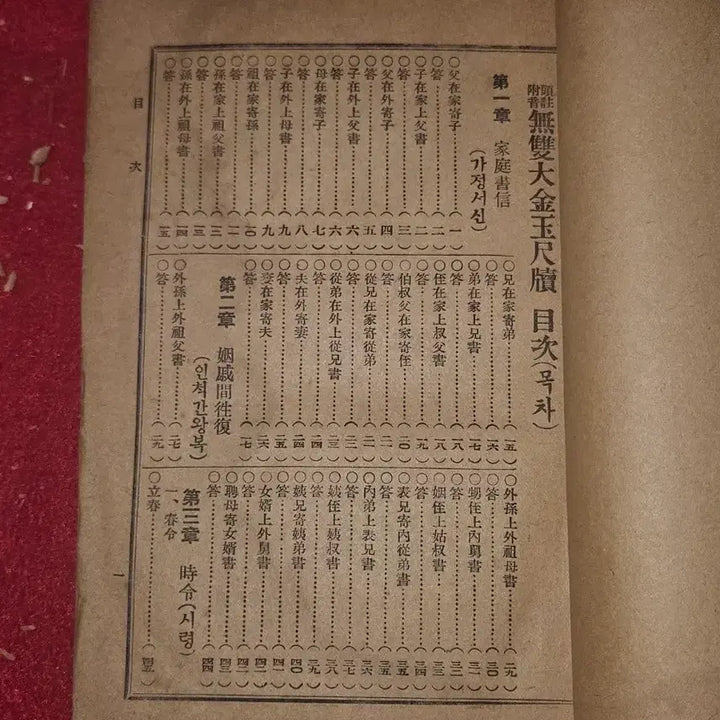 頭註
附音
無雙大金玉尺牘 目次(목차)
第一章 家庭書信(가정서신)
○父在家寄子……(一)
○答……(二)
○子在家上父書……(二)
○答……(三)
○父在外寄子……(四)
○答……(五)
○子在外上父書……(六)
○答……(六)
○母在家寄子……(七)
○答……(八)
○子在外上母書……(九)
○答……(九)
○祖在家寄孫……(一〇)
○答……(一一)
○孫在家上祖父書……(一二)
○答……(一三)
○孫在外上祖母書……(一四)
○答……(一五)
○兄在家寄弟……(一五)
○答……(一六)
○弟在家上兄書……(一七)
○答……(一八)
○侄在家上叔父書……(一八)
○答……(一九)
○伯叔父在家寄侄……(二〇)
○答……(二一)
○從兄在家寄從弟……(二一)
○答……(二二)
○從弟在外上從兄書……(二三)
○答……(二四)
○夫在外寄妻……(二四)
○答……(二五)
○妻在家寄夫……(二六)
○答……(二七)
第二章 姻戚間徃復(인척간왕복)
○外孫上外祖父書……(二七)
○答……(二九)
○外孫上外祖母書……(二九)
○答……(三〇)
○甥侄上內舅書……(三一)
○答……(三二)
○姻侄上姑叔書……(三三)
○答……(三四)
○表兄寄內從弟書……(三五)
○答……(三五)
○內弟上表兄書……(三六)
○答……(三七)
○姨侄上姨叔書……(三八)
○答……(三九)
○姨兄寄姨弟書……(四〇)
○答……(四一)
○女婿上外舅書……(四二)
○答……(四二)
○聘母寄女婿書……(四三)
○答……(四四)
第三章 時令(시령)
一、春令
○立春……(四五)
目次
一